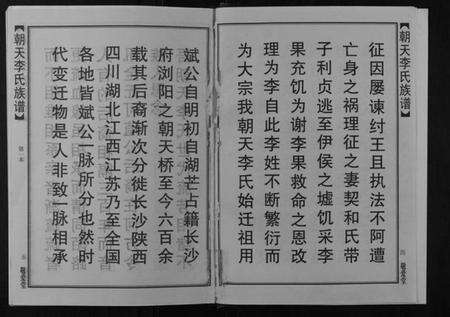 朝天李氏族谱
征因屡谏纣王且执法不阿遭
亡身之祸理征之妻契和氏带
子利贞逃至伊侯之墟饥采李
果充饥为谢李果救命之恩改
理为李自此李姓不断繁衍而
为大宗我朝天李氏始迁祖用
斌公自明初自湖芒占籍长沙
府浏阳之朝天桥至今六百余
载其后裔渐次分徙长沙陕西
四川湖北江西江苏乃至全国
各地皆斌公一脉所分也然时
代变迁物是人非致一脉相承
朝天李氏族谱